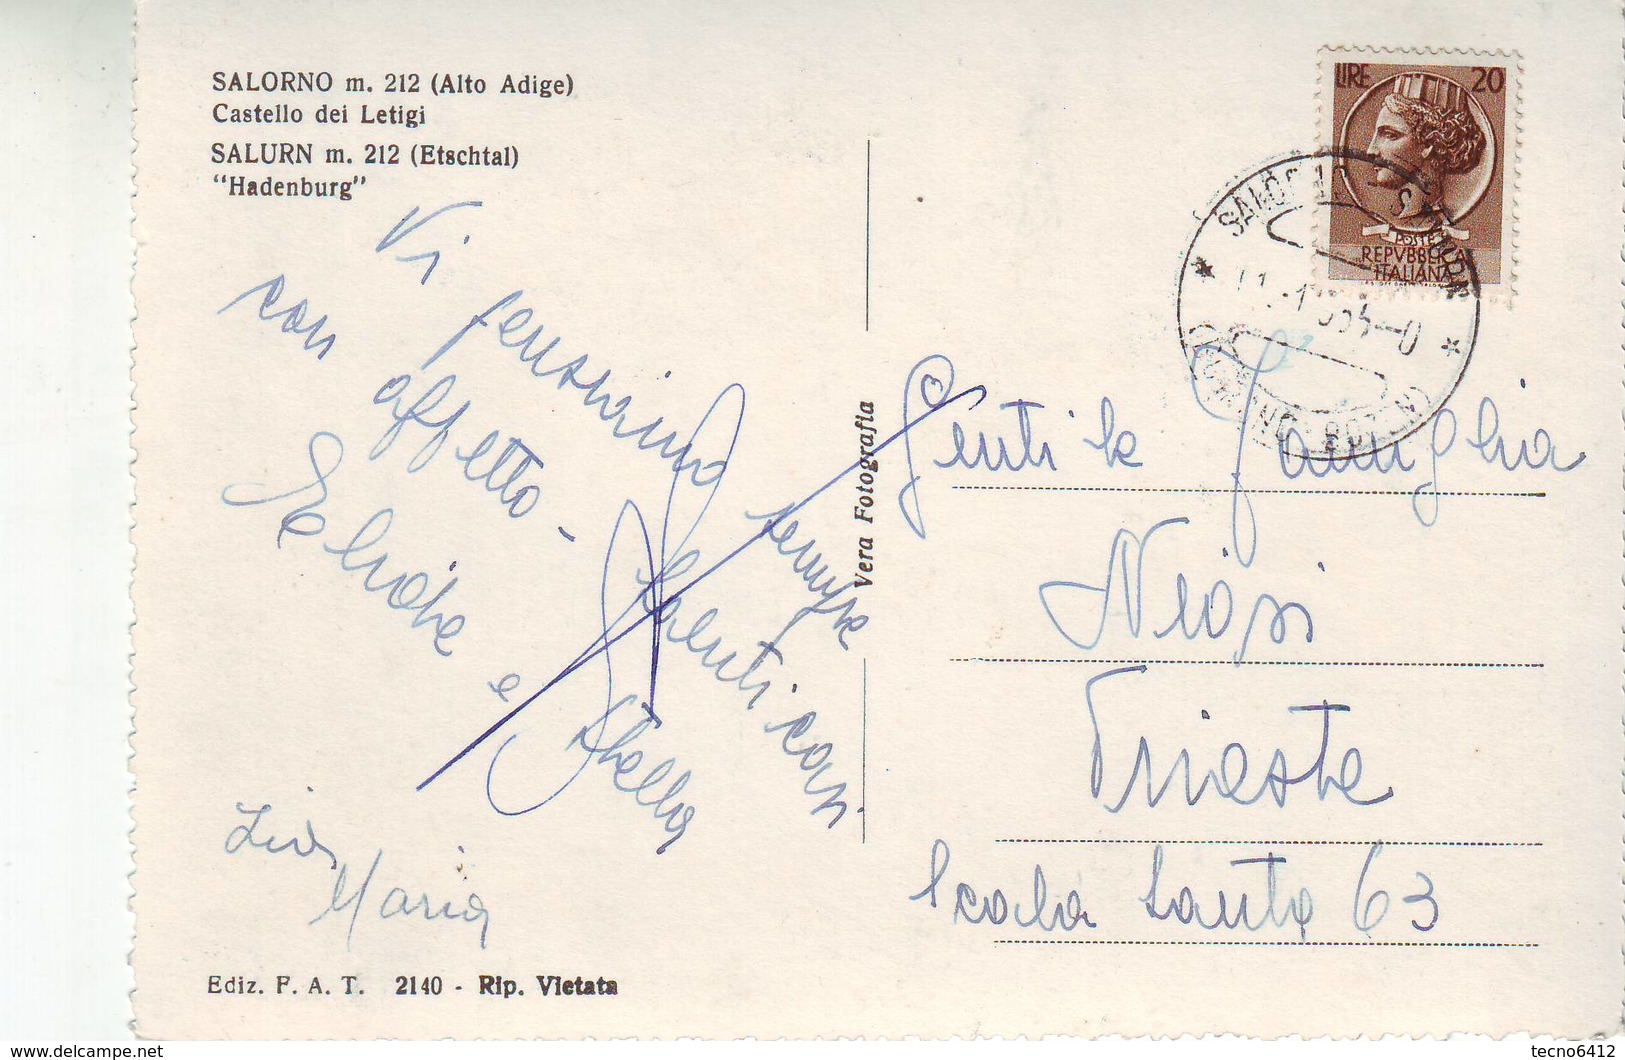 SALORNO m. 212 (Alto Adige)
Castello dei Letigi
SALURN m. 212 (Etschtal)
"Hadenburg"
Vi pensiamo sempre
con affetto -
Salenti cari
e Stella
Maria
Ediz. F. A. T. 2140 - Rip. Vietata
Vera Fotografia
LIRE 20
POSTE
REPVBBLICA
ITALIANA
SALORNO SALURN
Gentile Famiglia
Niosi
Trieste
Scala Santa 63
tecno6412
www.delcampe.net